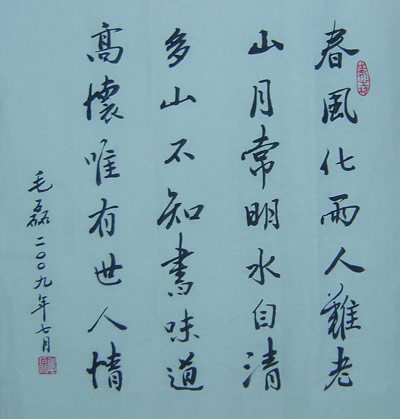 春風化雨人難老
山月常明水自清
多山不知書味道
高懷唯有世人情
毛磊二〇〇九年七月